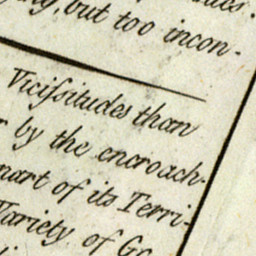 but too incon-
Viciſsitudes than
by the encroach-
part of its Terri-
Variety of